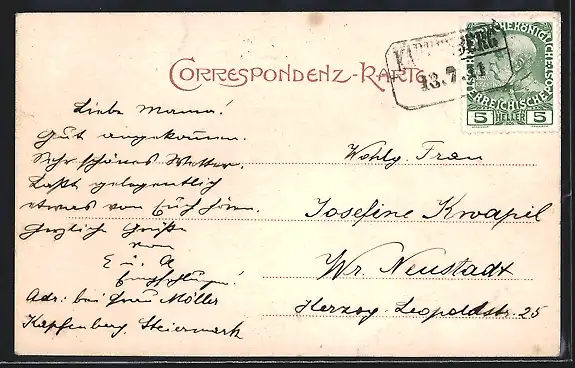 CORRESPONDENZ-KARTE
KAPFENBERG
13.7.11
KAISERLICHE KÖNIGLICHE ÖSTERREICHISCHE POST
5 HELLER 5
Liebe Mama!
Gut angekommen.
Sehr schönes Wetter.
Laßt gelegentlich
etwas von Euch hören.
Herzliche Grüße
von
E u. A
Adr: bei Frau Möller
Kapfenberg, Steiermark
Wohlg. Frau
Josefine Kwapil
Wr. Neustadt
Herzog-Leopoldstr. 25